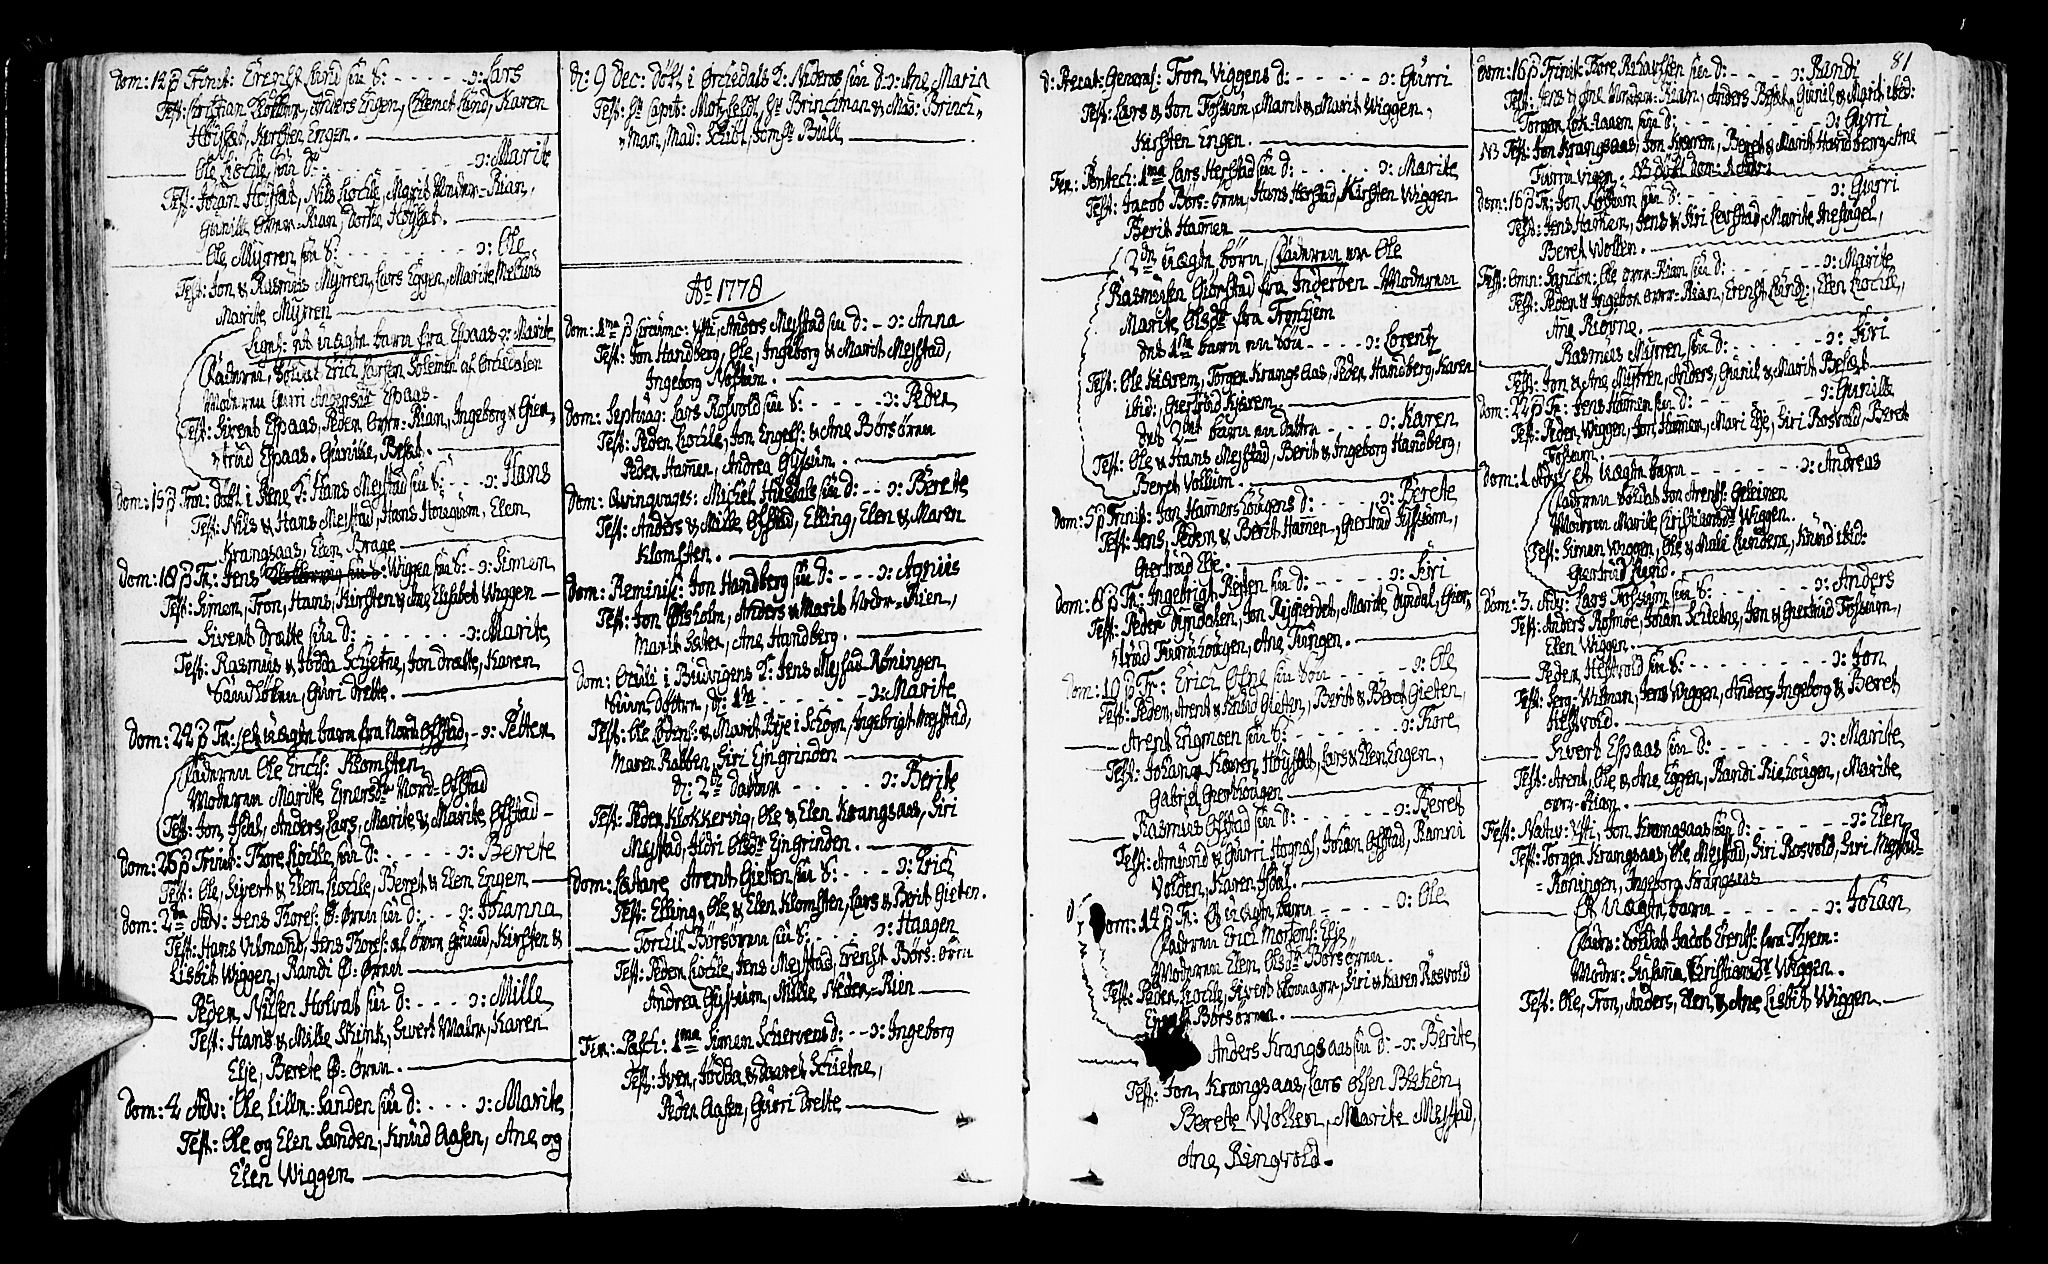 dom: 12 p Trinit: Erenst Lund sin S: - - - - - ɔ: Lars
Test: Christian Anders Engen, Clemet Lund, Karen
Høÿstat, Kersten Engen.
Ole Lochle sin D: - - - - - ɔ: Marite
Test: Johan Høistat, Nils Lochle, Marit Neder-Rian,
Gunille Øvre-Rian, Dorte Høÿstat.
Ole Myrren sin S: - - - - - ɔ: Ole
Test: Jon & Rasmus Myrren, Lars Eggen, Marite Melhus
Marite Myrren
Ligesaa: et uægte barn fra Espaas ɔ: Marite
Faderen, Soldat Erich Larsen af Orchedalen
Moderen Guri Andersdr Espaas.
Test: Sivert Espaas, Peder øvre-Rian, Ingeborg & Gier-
trud Espaas. Gunille Bestst.
dom: 15 p Trin: døbt i Ørne K: Hans Mejstad sin S: - - ɔ: Hans
Test: Nils & Hans Mejstad, Hans Hougum, Elen
Krangsaas, Elen Brage
dom: 18 p Tr: Jens Wiggen sin S: - ɔ: Simen
Test: Simen, Tron, Hans, Kirsten & Ane Elisabet Wiggen
Sivert Drætte sin D: - - - - - ɔ: Marite
Test: Rasmus & Jødda Schjetne, Jon Drætte, Karen
Guri Drette.
dom: 22 p Tr: Et uægte barn fra Nord Ofstad, - ɔ: Petter
Faderen Ole Erichs: Klomsten
Moderen Marite Ejnersdr Nord-Ofstad
Test: Jon Asdal, Anders, Lars, Marite & Marite Ofstad
dom: 26 p Trinit: Thore Lochle sin D: - - - - ɔ: Berete
Test: Ole, Sivert & Elen Lochle, Beret & Elen Engem
dom: 2den Adv: Jens Thores: Ø-Ørren sin D: - - ɔ: Johanna
Test: Hans Vilmand, Jens Thores: af øvre Grund, Kirsten &
Lisbet Wiggen, Randi Ø-Ørren
Peder Nilsen Holvas sin D: - - - ɔ: Mille
Test: Hans & Mille Skink, Sivert Malm, Karen
Elje, Berete Ø-Ørren.
dom: 4 Adv: Ole Lilln: Sanden sin D: - - - ɔ: Marite
Test: Ole og Elen Sanden, Knud Aasen, Ane og
Elen Wiggen
d: 9 Dec: døbt i Orchedals K: sin D: ɔ: Ane Maria
Test: Hr Capit: Motzfeldt, Hr Brinchman & Mad: Brinch-
man, Mad: Schiøt, Jomfr Büll
Ao 1778
dom: 1ma p Circumc: Xti, Anders Mejstad sin D: - ɔ: Anna
Test: Jon Handberg, Ole, Ingeborg & Marit Mejstad,
Ingeborg
dom: Septuag: Lars Rosvold sin S: - - - - ɔ: Peder
Test: Peder Lochle, Jon Engels: & Ane Børsøren
Peder Hamen, Andrea Gÿssum.
dom: Qvinqvages: Michel sin D: - - ɔ: Berete
Test: Anders & Mille Ofstad, Elling, Elen & Maren
Klomsten.
dom: Reminisc: Jon Handberg sin D: - - - ɔ: Agniis
Test: Jon Olsholm, Anders & Marit Neder-Rien,
Marit Sæter, Ane Handberg.
dom: Oculi i Budvigens K: Jens Mejstad Røningen
døttre, d: 1te - - - - ɔ: Marite
Test: Ole & Marit Bÿe i Schogn, Ingebrigt Mejstad,
Maren Rabben, Siri Ejngrinden
d: 2den datter - - - - ɔ: Berite
Test: Peder Klokkervig, Ole & Elen Krangsaas, Siri
Mejstad, Aldri Olsdr Ejngrinden.
dom: Lætare Arent Gieten sin S: - - - - ɔ: Erich
Test: Elling, Ole & Elen Klomsten, Lars & Berit Gieten.
Torchil Børsøren sin S: - - - - ɔ: Haagen
Test: Peder Lochle, Jens Mejstad, Erenst Børs-øren
Andrea Gÿssum, Mille Neder-Rien
Fer: Pasch: 1ma Simen Schervens D: - - ɔ: Ingeborg
Test: Iver, Jødda & Daaret Schetne,
Peder Aasen, Gurri Drette
d: Precat: General: Tron Viggens D: - - - - - ɔ: Gurri
Test: Lars & Jon Fossum, Marit & Marit Wiggen,
Kirsten Engen.
Fer: Pentec: 1ma Lars Herstad sin D: - - - ɔ: Marite
Test: Jacob Børs-øren, Hans Herstad, Kirsten Wiggen
Berit Hamen
2de uægte børn, Faderen er Ole
Rasmusen Giørstad fra Inderøen Moderen
Marite Olsdr fra Tronhjem
det 1te barn en søn - - - - ɔ: Lorentz
Test: Ole Kiærem, Torgen Krangsaas, Peder Handberg, Karen
ibid:, Giertrud Kjærem.
det 2det barn en datter - - - - ɔ: Karen
Test: Ole & Hans Mejstad, Berit & Ingeborg Handberg,
Beret Volsum.
dom: 5 p Trinit: Jon Hamershougens D: - - - - ɔ: Berete
Test: Jens, Peder & Berit Hamen, Giertrud
Giertrud Elje.
dom: 8 p Tr: Ingebrigt Resten sin D: - - - - ɔ: Siri
Test: Peder Dyndalen, Jon Marite Dyndal, Gier-
trud Ane Tungen.
dom: 10 p Tr: Erich sin Søn - - - - ɔ: Ole
Test: Peder, Arent & Gieten, Berit & Beret Gieten,
Arent Engmoen sin S: - - - - ɔ: Thore
Test: Johan & Karen Høystat, Lars & Elen Engen,
Gabriel Gierhougen
Rasmus Ofstad sin D: - - - - ɔ: Beret
Test: Amund & Gurri Johan Ofstad, Ranni
Volden, Karen Asdal.
dom: 14 p Tr: Et uægte barn - - - ɔ: Ole
Faderen Erich Mortens: Elje
Moderen Elen Olsdr Børsøren.
Test: Peder Lochle, Sivert Siri & Karen Rosvold
Børsøren.
Anders Krangsaas sin D: - ɔ: Berite
Test: Jon Krangsaas, Lars Olsen
Berete Wollen, Marite Mejstad,
Ane Ringvold.
81
dom: 16 p Trinit: Thore sin D: - - - - ɔ: Randi
Test: Neder-Rian, Anders Gunil & Marit ibid:
Torgen sin D: - - - - ɔ: Gurri
NB Test: Jon Krangsaas, Jon Kjærem, Beret & Marit Handberg, Ane
dom: 16 p Tr: Jon sin D: - - - - ɔ: Gurri
Test: Jens Hamen, Jens & Siri Marite
Beret Wollen.
Fest: Omn: Sanctor: Ole øvre-Rian sin D: - - - - ɔ: Marite
Test: Peder & Ingebor øvre-Rian, Erenst Lund, Elen Lochle,
Ane
Rasmus Myrren sin D: - - - - ɔ: Siri
Test: Jon & Ane Myrren, Anders, Gunil & Marit
dom: 22 p Tr: Jens Hamen sin D: - - - - - ɔ: Gunille
Test: Peder Wiggen, Jon Hamen, Mari Elje, Siri Rosvold, Beret
Fossum.
dom: 1 Adv: Et uægte barn - - - - ɔ: Andreas
Faderen Soldat Jon Arents:
Moderen Marite Christiansdr Wiggen.
Test: Simen Wiggen, Ole & Mali Knud ibid:
Giertrud
dom: 3. Adv: Lars Fossum sin S: - - - - ɔ: Anders
Test: Anders Rosmoe, Johan Schetne, Jon & Giertrud Fossum,
Elen Wiggen.
Peder Heftvold sin S: - - - - - ɔ: Jon
Test: Jens Wiggen, Anders, Ingeborg & Beret
Heftvold.
Sivert Espaas sin D: - - - - - ɔ: Marite
Test: Arent, Ole & Ane Eggen, Randi Marite
øvre-Rian.
Fest: Nativ: Xsti, Jon Krangsaas sin D: - - - - - ɔ: Elen
Test: Torgen Krangsaas, Ole Mejstad, Siri Rosvold, Siri Mejstad-
-Røningen, Ingeborg Krangsaas
Et uægte barn - - - - - ɔ: Johan
Fader: Soldat Jacob Erents:
Moder: Susanna Christiansdr Wiggen.
Test: Ole, Tron, Anders, Elen & Ane Lisbet Wiggen